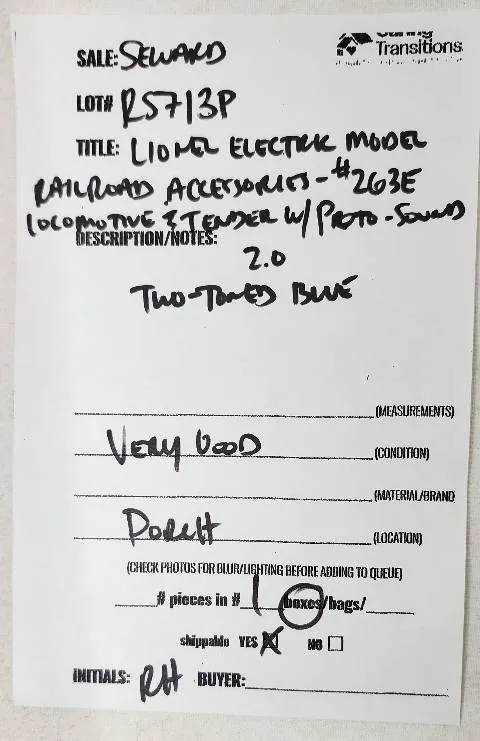 Caring
Transitions
SALE: SEWARD
LOT# RS713P
TITLE: LIONEL ELECTRIC MODEL
RAILROAD ACCESSORIES - #263E
LOCOMOTIVE & TENDER W/ PROTO-SOUND
DESCRIPTION/NOTES:
2.0
TWO-TONED BLUE
(MEASUREMENTS)
VERY GOOD (CONDITION)
(MATERIAL/BRAND
PORCH (LOCATION)
(CHECK PHOTOS FOR BLUR/LIGHTING BEFORE ADDING TO QUEUE)
____# pieces in #_1_ boxes/bags/____
shippable YES ☒ NO ☐
INITIALS: RH BUYER: